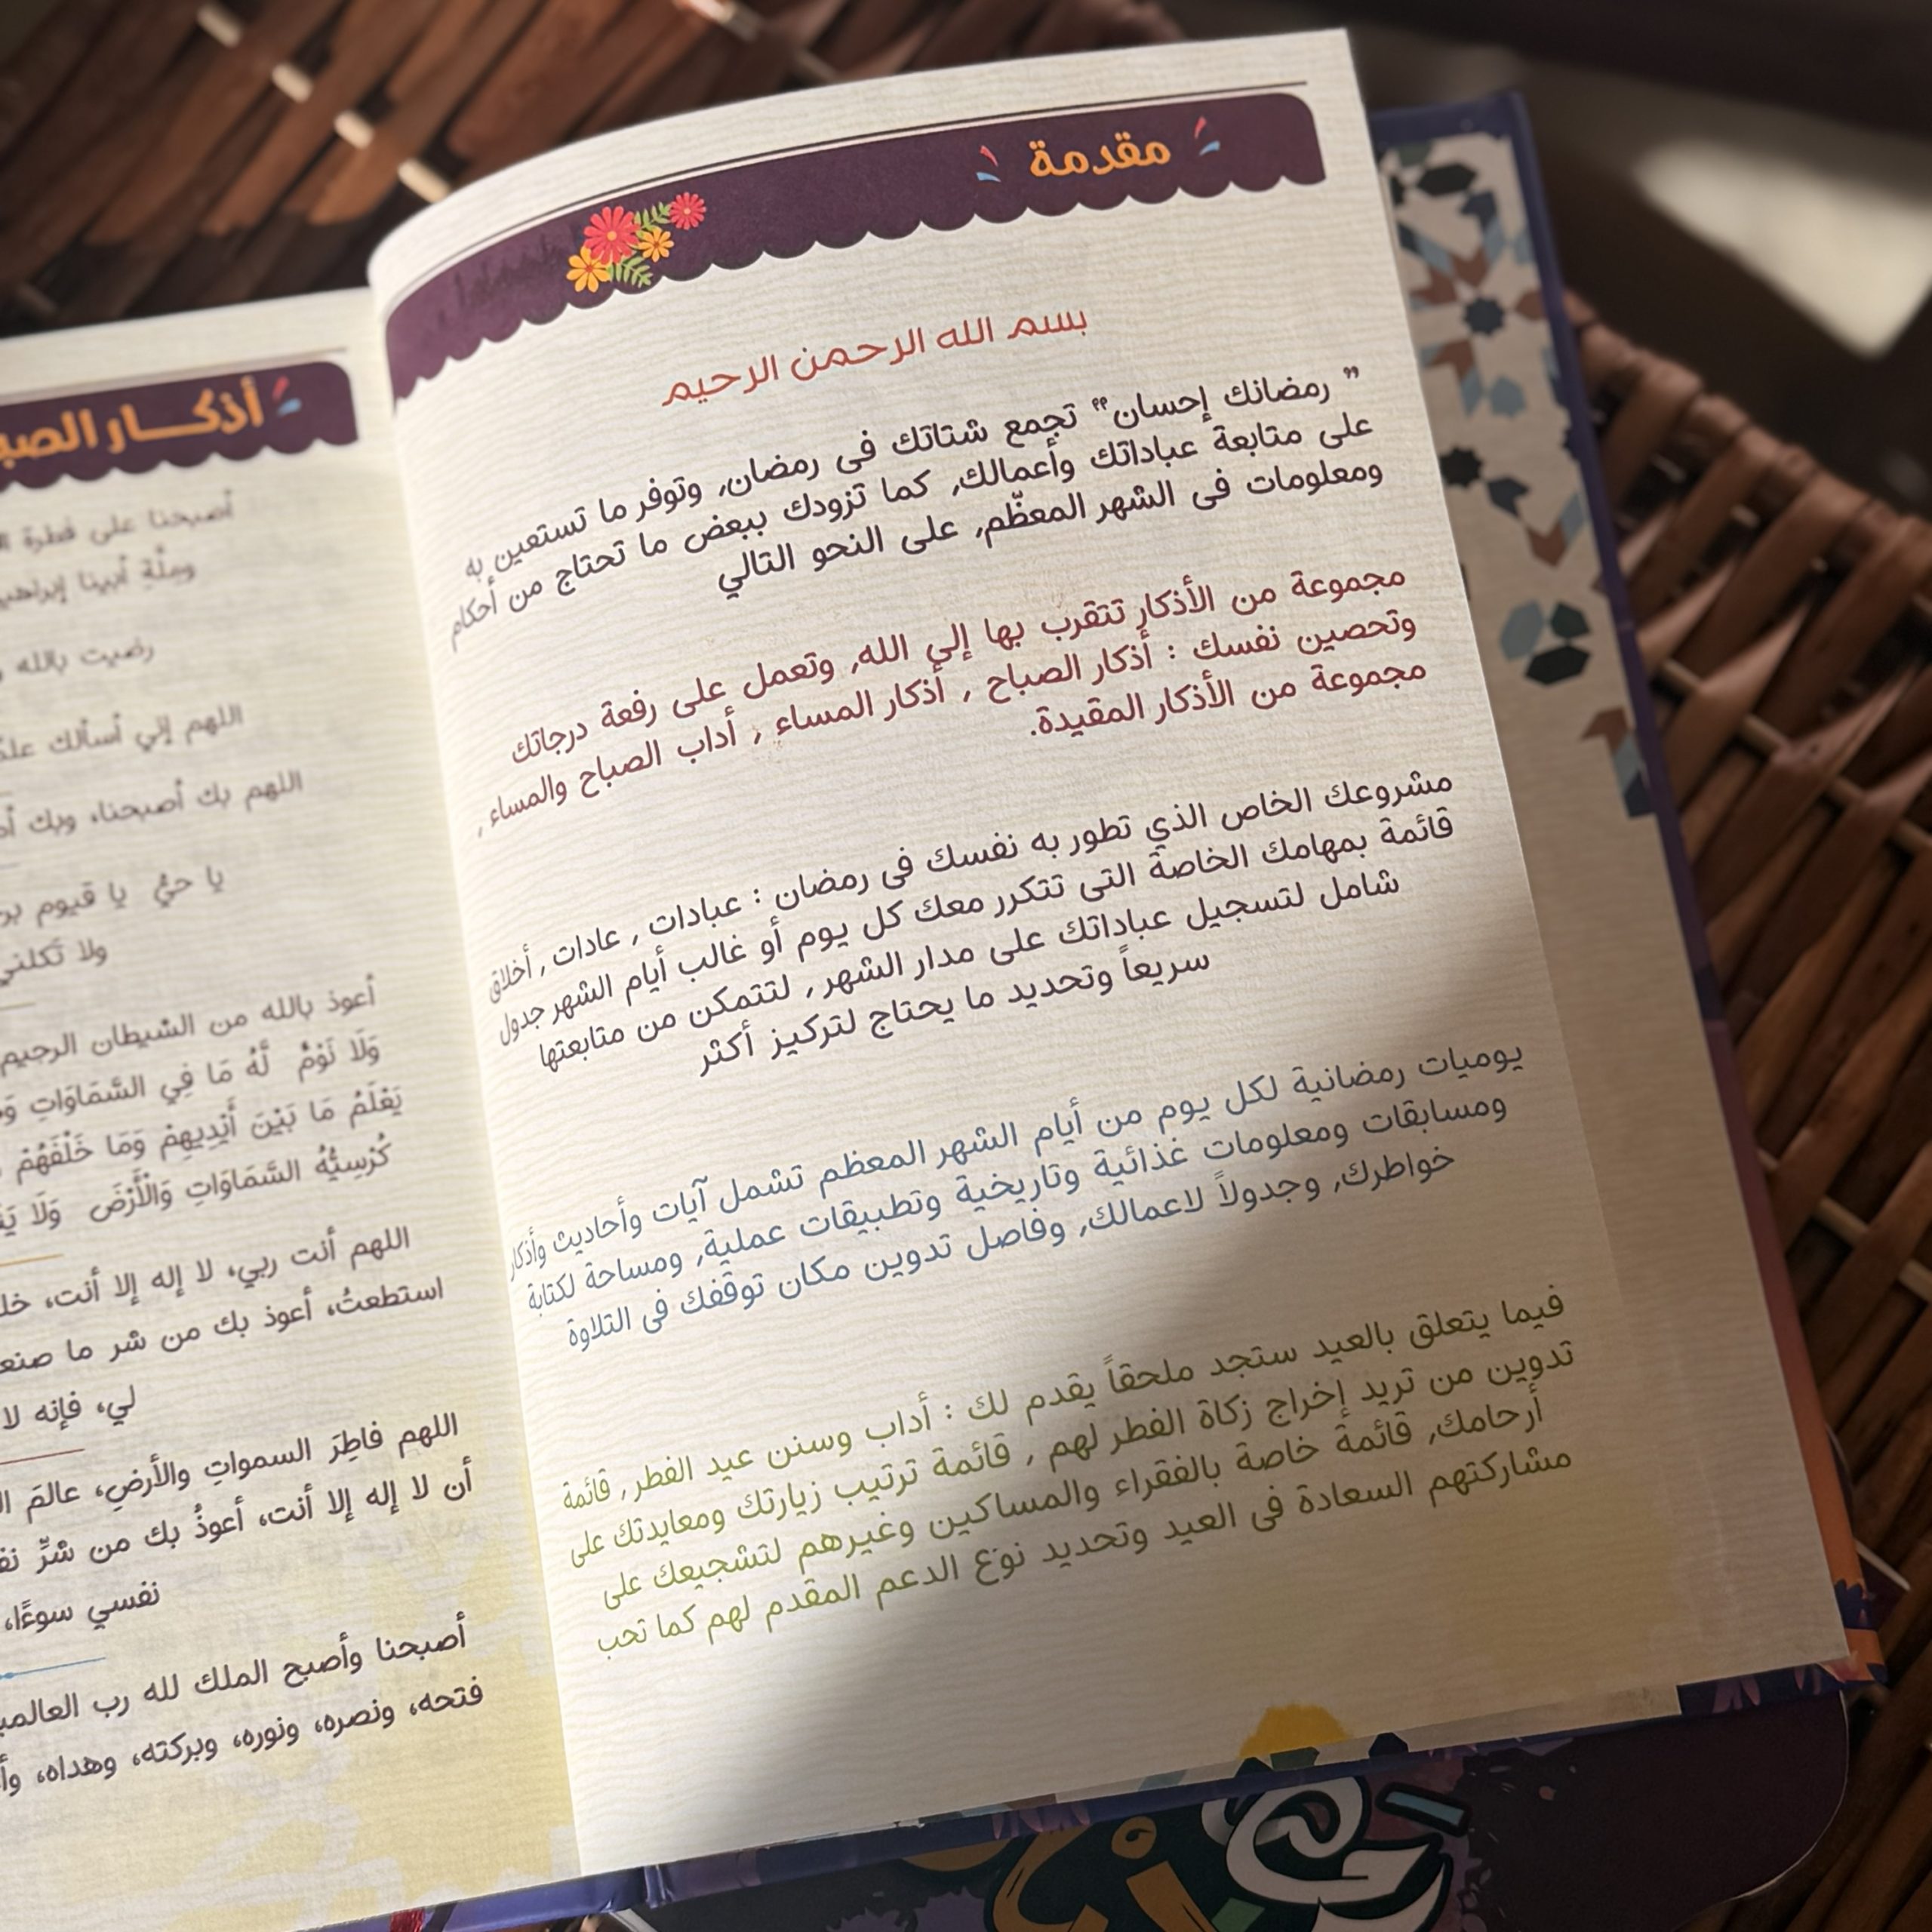 مقدمة
بسم الله الرحمن الرحيم
” رمضانك إحسان“ تجمع شتاتك فى رمضان, وتوفر ما تستعين به
على متابعة عباداتك وأعمالك, كما تزودك ببعض ما تحتاج من أحكام
ومعلومات فى الشهر المعظّم, على النحو التالي
مجموعة من الأذكار تتقرب بها إلى الله, وتعمل على رفعة درجاتك
وتحصين نفسك : أذكار الصباح , أذكار المساء , أداب الصباح والمساء ,
مجموعة من الأذكار المقيدة.
مشروعك الخاص الذي تطور به نفسك فى رمضان : عبادات , عادات , أخلاق
قائمة بمهامك الخاصة التى تتكرر معك كل يوم أو غالب أيام الشهر جدول
شامل لتسجيل عباداتك على مدار الشهر , لتتمكن من متابعتها
سريعاً وتحديد ما يحتاج لتركيز أكثر
يوميات رمضانية لكل يوم من أيام الشهر المعظم تشمل آيات وأحاديث وأذكار
ومسابقات ومعلومات غذائية وتاريخية وتطبيقات عملية, ومساحة لكتابة
خواطرك, وجدولاً لاعمالك, وفاصل تدوين مكان توقفك فى التلاوة
فيما يتعلق بالعيد ستجد ملحقاً يقدم لك : أداب وسنن عيد الفطر , قائمة
تدوين من تريد إخراج زكاة الفطر لهم , قائمة ترتيب زيارتك ومعايدتك على
أرحامك, قائمة خاصة بالفقراء والمساكين وغيرهم لتشجيعك على
مشاركتهم السعادة فى العيد وتحديد نوع الدعم المقدم لهم كما تحب
أذكـــار
أصبحنا على فطرة
وملّةِ أبينا
رضيت بالله
اللهم إني أسألك
اللهم بك أصبحنا، وبك
يا حيُّ يا قيوم
ولا تكلني
أعوذ بالله من الشيطان الرجيم
وَلَا نَوْمٌ لَّهُ مَا فِي السَّمَاوَاتِ
يَعْلَمُ مَا بَيْنَ أَيْدِيهِمْ وَمَا خَلْفَهُمْ
كُرْسِيُّهُ السَّمَاوَاتِ وَالْأَرْضَ وَلَا
اللهم أنت ربي، لا إله إلا أنت،
استطعتُ، أعوذ بك من شر ما
لي، فإنه لا
اللهم فاطِرَ السمواتِ والأرضِ، عالمَ
أن لا إله إلا أنت، أعوذُ بك من شرِّ
نفسي سوءًا،
أصبحنا وأصبح الملك لله رب
فتحه، ونصره، ونوره، وبركته، وهداه،